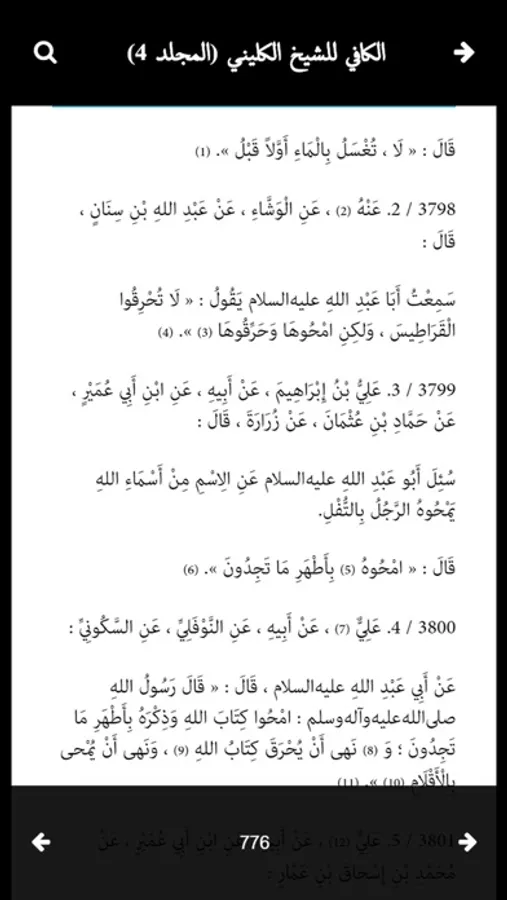 الكافي للشيخ الكليني (المجلد 4)
قَالَ : « لَا ، تُغْسَلُ بِالْمَاءِ أَوَّلاً قَبْلُ ». (1)
3798 / 2. عَنْهُ (2) ، عَنِ الْوَشَّاءِ ، عَنْ عَبْدِ اللهِ بْنِ سِنَانٍ ،
قَالَ :
سَمِعْتُ أَبَا عَبْدِ اللهِ عليه‌السلام يَقُولُ : « لَا تُحْرِقُوا
الْقَرَاطِيسَ ، وَلكِنِ امْحُوهَا وَحَرِّقُوهَا (3) ». (4)
3799 / 3. عَلِيُّ بْنُ إِبْرَاهِيمَ ، عَنْ أَبِيهِ ، عَنِ ابْنِ أَبِي عُمَيْرٍ ،
عَنْ حَمَّادِ بْنِ عُثْمَانَ ، عَنْ زُرَارَةَ ، قَالَ :
سُئِلَ أَبُو عَبْدِ اللهِ عليه‌السلام عَنِ الِاسْمِ مِنْ أَسْمَاءِ اللهِ
يَمْحُوهُ الرَّجُلُ بِالتُّفْلِ.
قَالَ : « امْحُوهُ (5) بِأَطْهَرِ مَا تَجِدُونَ ». (6)
3800 / 4. عَلِيٌّ (7) ، عَنْ أَبِيهِ ، عَنِ النَّوْفَلِيِّ ، عَنِ السَّكُونِيِّ :
عَنْ أَبِي عَبْدِ اللهِ عليه‌السلام ، قَالَ : « قَالَ رَسُولُ اللهِ
صلى‌الله‌عليه‌وآله‌وسلم : امْحُوا كِتَابَ اللهِ وَذِكْرَهُ بِأَطْهَرِ مَا
تَجِدُونَ ؛ وَ (8) نَهى أَنْ يُحْرَقَ كِتَابُ اللهِ (9) ، وَنَهى أَنْ يُمْحى
بِالْأَقْلَامِ (10) ». (11)
3801 / 5. عَلِيٌّ (12) ، عَنْ أَبِيهِ ، عَنِ ابْنِ أَبِي عُمَيْرٍ ، عَنْ
776
مُحَمَّدِ بْنِ إِسْحَاقَ بْنِ عَمَّارٍ :